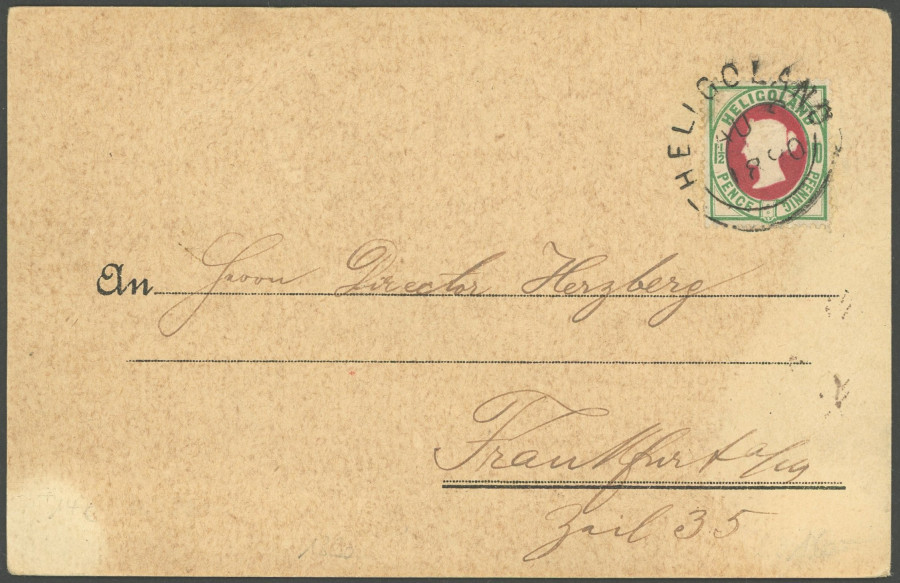 HELIGOLAND
HELIGOLAND
1/2 PENCE 10 PFENNIG
An Herrn Director Herzberg
Frankfurt a/M
Zeil 35